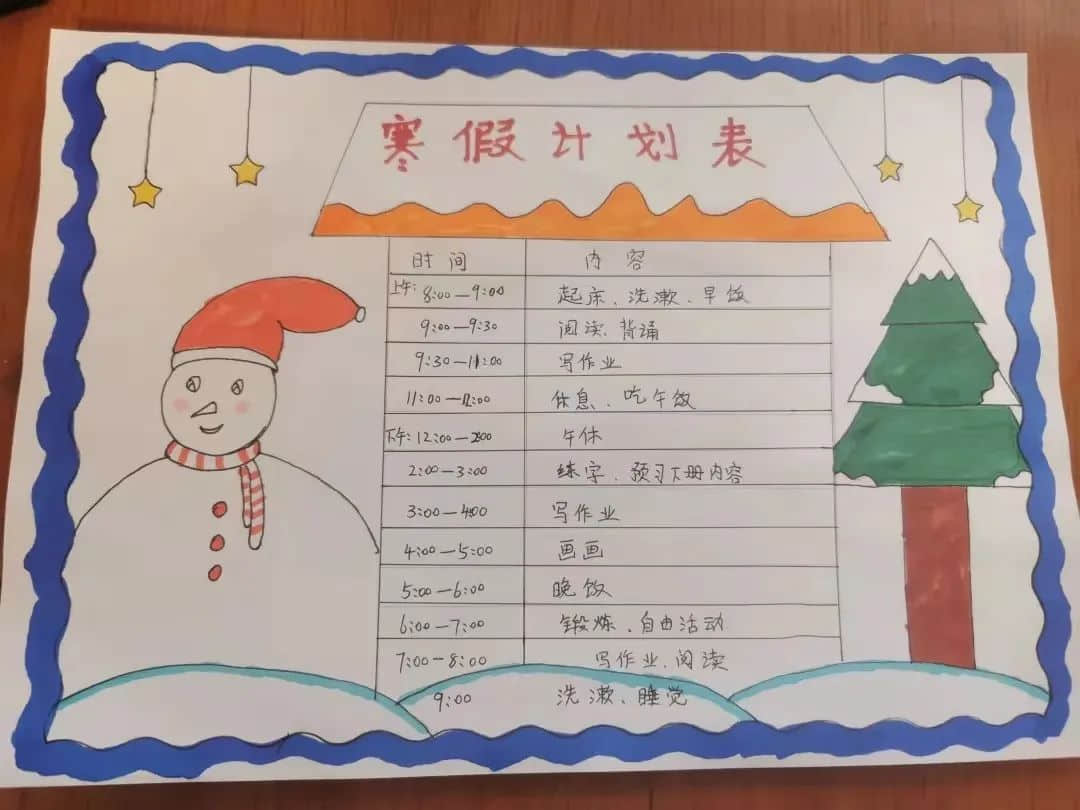 寒假计划表
时间 内容
上午: 8:00—9:00 起床、洗漱、早饭
9:00—9:30 阅读、背诵
9:30—11:00 写作业
11:00—12:00 休息、吃午饭
下午: 12:00—2:00 午休
2:00—3:00 练字、预习下册内容
3:00—4:00 写作业
4:00—5:00 画画
5:00—6:00 晚饭
6:00—7:00 锻炼、自由活动
7:00—8:00 写作业、阅读
9:00 洗漱、睡觉